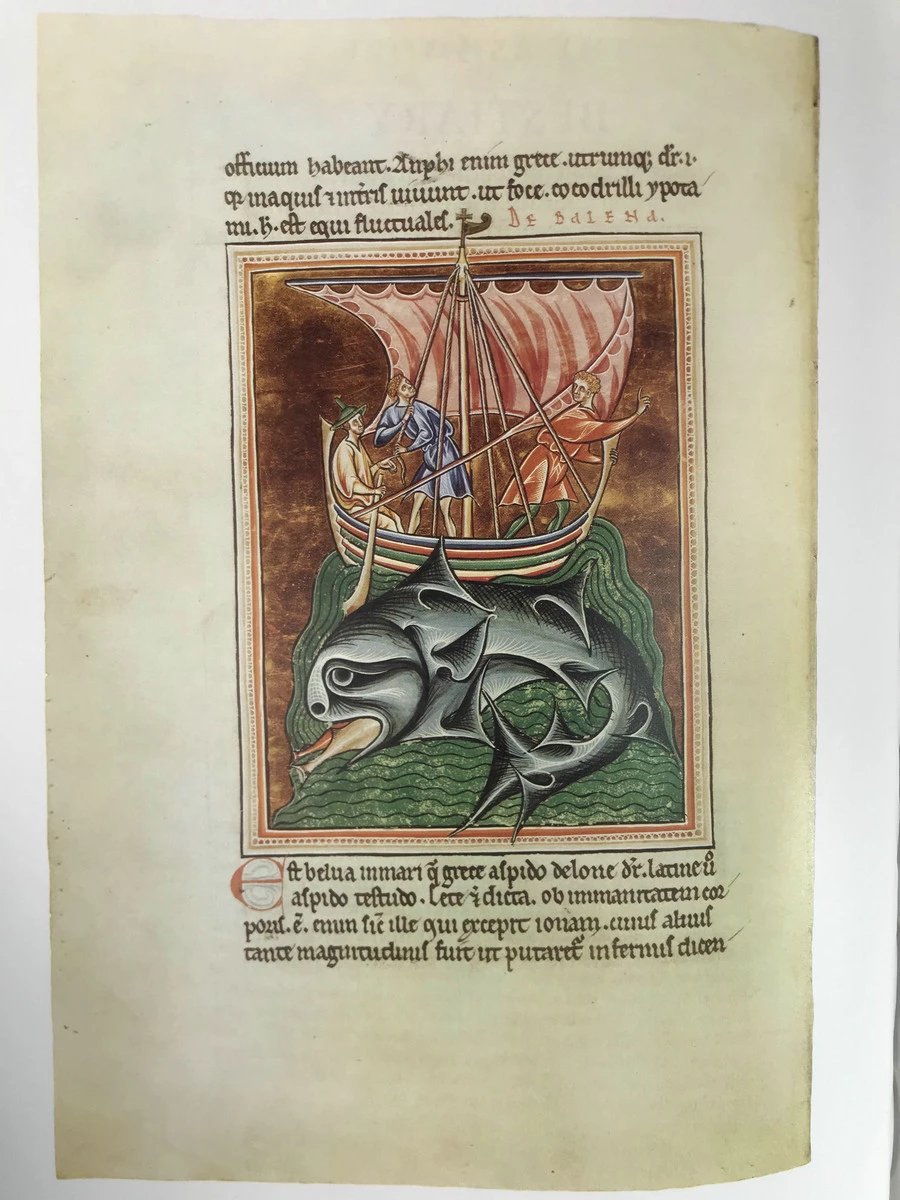 officium habeant. Amphi enim grece. utrumq; dr̄. i.
qꝫ in aquis ⁊ in t̄ris uiuunt. ut foce. cocodrilli ypota
mi. h̄. est equi fluctuales.
DE BALENA.
Est belua in mari q̄ grece aspido delone dr̄. latine ů
aspido testudo. Cete ⁊ dicta. ob immanitatem cor
poris. ē. enim sic̄ ille qui excepit ionam. cuius aluus
tante magnitudinis fuit ut putaret᷑ infernus dicen